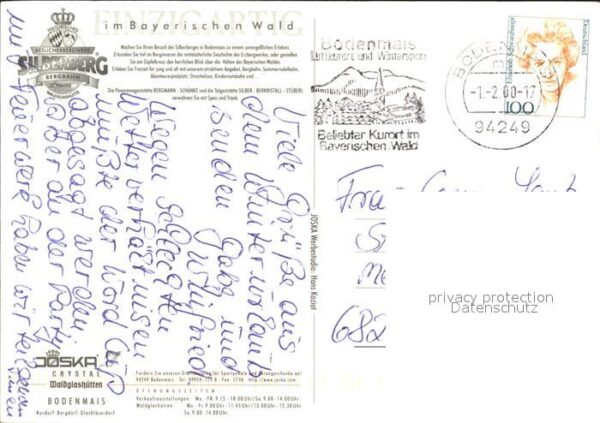 FREIZEITARENA
im Bayerischen Wald
HISTORISCHES
BESUCHERBERGWERK
SILBERBERG
BERGBAHN
BODENMAIS
Machen Sie Ihren Besuch der Silberberges in Bodenmais zu einem unvergeßlichen Erlebnis.
Erkunden Sie tief im Berginneren die mittelalterliche Geschichte des Erzbergwerkes, oder genießen
Sie am Gipfelkreuz den herrlichen Blick über die Höhen des Bayerischen Waldes.
Erleben Sie Freizeit für jung und alt mit unseren attraktiven Angebot, Bergbahn, Sommerrodelbahn,
Abenteuerspielplatz, Streichelzoo, Kindereisenbahn und
Die Panoramagaststätte BERGMANN - SCHÄNKE und die Talgaststätte SILBER - BERKRISTALL - STÜBERL
verwöhnen Sie mit Speis und Trank.
Bodenmais
Luftkurort und Wintersport
Beliebter Kurort im
Bayerischen Wald
BODENMAIS
-1.-2.00-17
94249
Deutschland
100
Viele Grüße aus
dem Winterurlaub
senden Gabi und
Wilfried
Wegen schlechten
Wetterverhältnissen
mußte der Word Cup
abgesagt werden
aber an der Party
und Feuerwerk haben wir teilgenommen
Frau
Me
682
JOSKA Werbestudio: Hans Kaziat
privacy protection
Datenschutz
JOSKA
CRYSTAL
Waldglashütten
BODENMAIS
Kurdorf Bergdorf Glasbläserdorf
Fordern Sie unseren Gratiskatalog für Sportpokale und Ehrengeschenke an!
94249 Bodenmais · Tel. 09924-779-0 · Fax: 1796 · http://www.joska.com
ÖFFNUNGSZEITEN
Verkaufsausstellungen: Mo - FR. 9.15 - 18.00 Uhr / Sa. 9.00 - 14.00 Uhr
Waldglashütten: Mo - Fr. 9.00 Uhr - 11:45 Uhr / 13.00 Uhr - 15:30 Uhr
Sa. 9.00 -14.00 Uhr